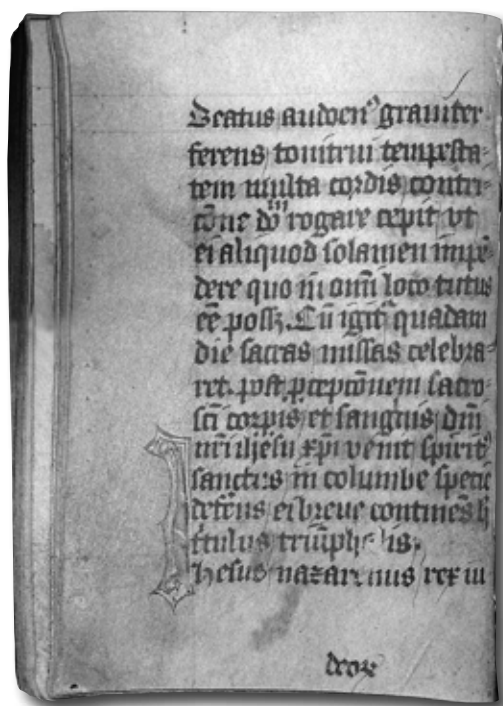 Beatus audoen⁹ grauiter
ferens tonitrui tempesta-
tem multa cordis contri-
cōne dō rogare cepit vt
ei aliquod solamen impē-
dere quo in om̄i loco tutus
eē poss₃. Cū igit² quadam
die sacras missas celebra-
ret. post ꝑcepcōnem sacro
sc̄i corpis et sanguis dn̄i
nr̄i ihesu xp̄i venit spirit⁹
sanctus in columbe specie
defēns ei breue continēs
titulus triūph is.
Ihesus nazarenus rex iu
deoꝝ